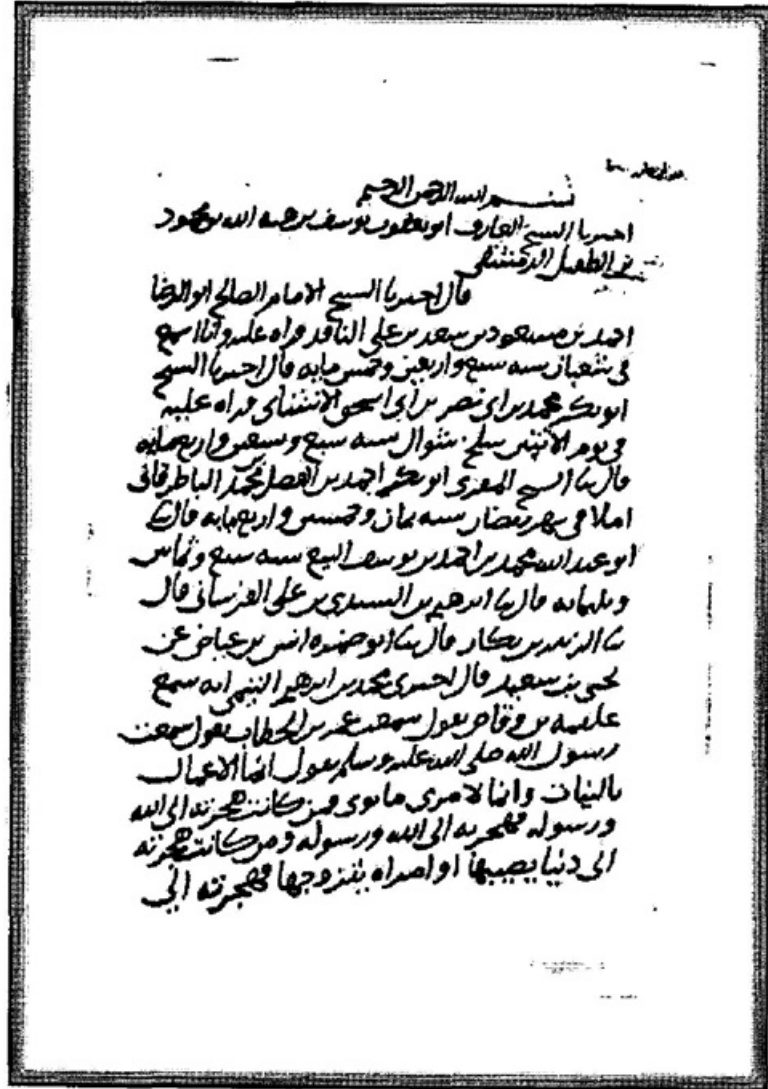 بسم الله الرحمن الرحيم
اخبرنا الشيخ العارف ابو يعقوب يوسف بن هبه الله بن محمود
بن الطفيل الدمشقي
قال اخبرنا الشيخ الامام الصالح ابو الرضا
احمد بن مسعود بن سعد بن علي الناقد قراه عليه وانا اسمع
في شعبان سنه سبع واربعين وخمس مايه قال اخبرنا الشيخ
ابو بكر محمد بن ابي نصر بن ابي اسحق الاشناني قراه عليه
في يوم الاثنين سلخ شوال سنه سبع وسبعين واربع مايه
قال ثنا الشيخ المقري ابو بكر احمد بن الفضل بن محمد الباطرقاني
املا في شهر رمضان سنه ثمان وخمسين واربع مايه قال ثنا
ابو عبد الله محمد بن احمد بن يوسف البيع سنه سبع وثمانين
وثلثمايه قال ثنا ابرهيم بن السندي بن علي الفرساني قال
ثنا الزبير بن بكار قال ثنا ابو ضمره انس بن عياض عن
يحيى بن سعيد قال اخبرني محمد بن ابرهيم التيمي انه سمع
علقمه بن وقاص يقول سمعت عمر بن الخطاب يقول سمعت
رسول الله صلى الله عليه وسلم يقول انما الاعمال
بالنيات وانما لامرى ما نوى فمن كانت هجرته الى الله
ورسوله فهجرته الى الله ورسوله ومن كانت هجرته
الى دنيا يصيبها او امراه يتزوجها فهجرته الي